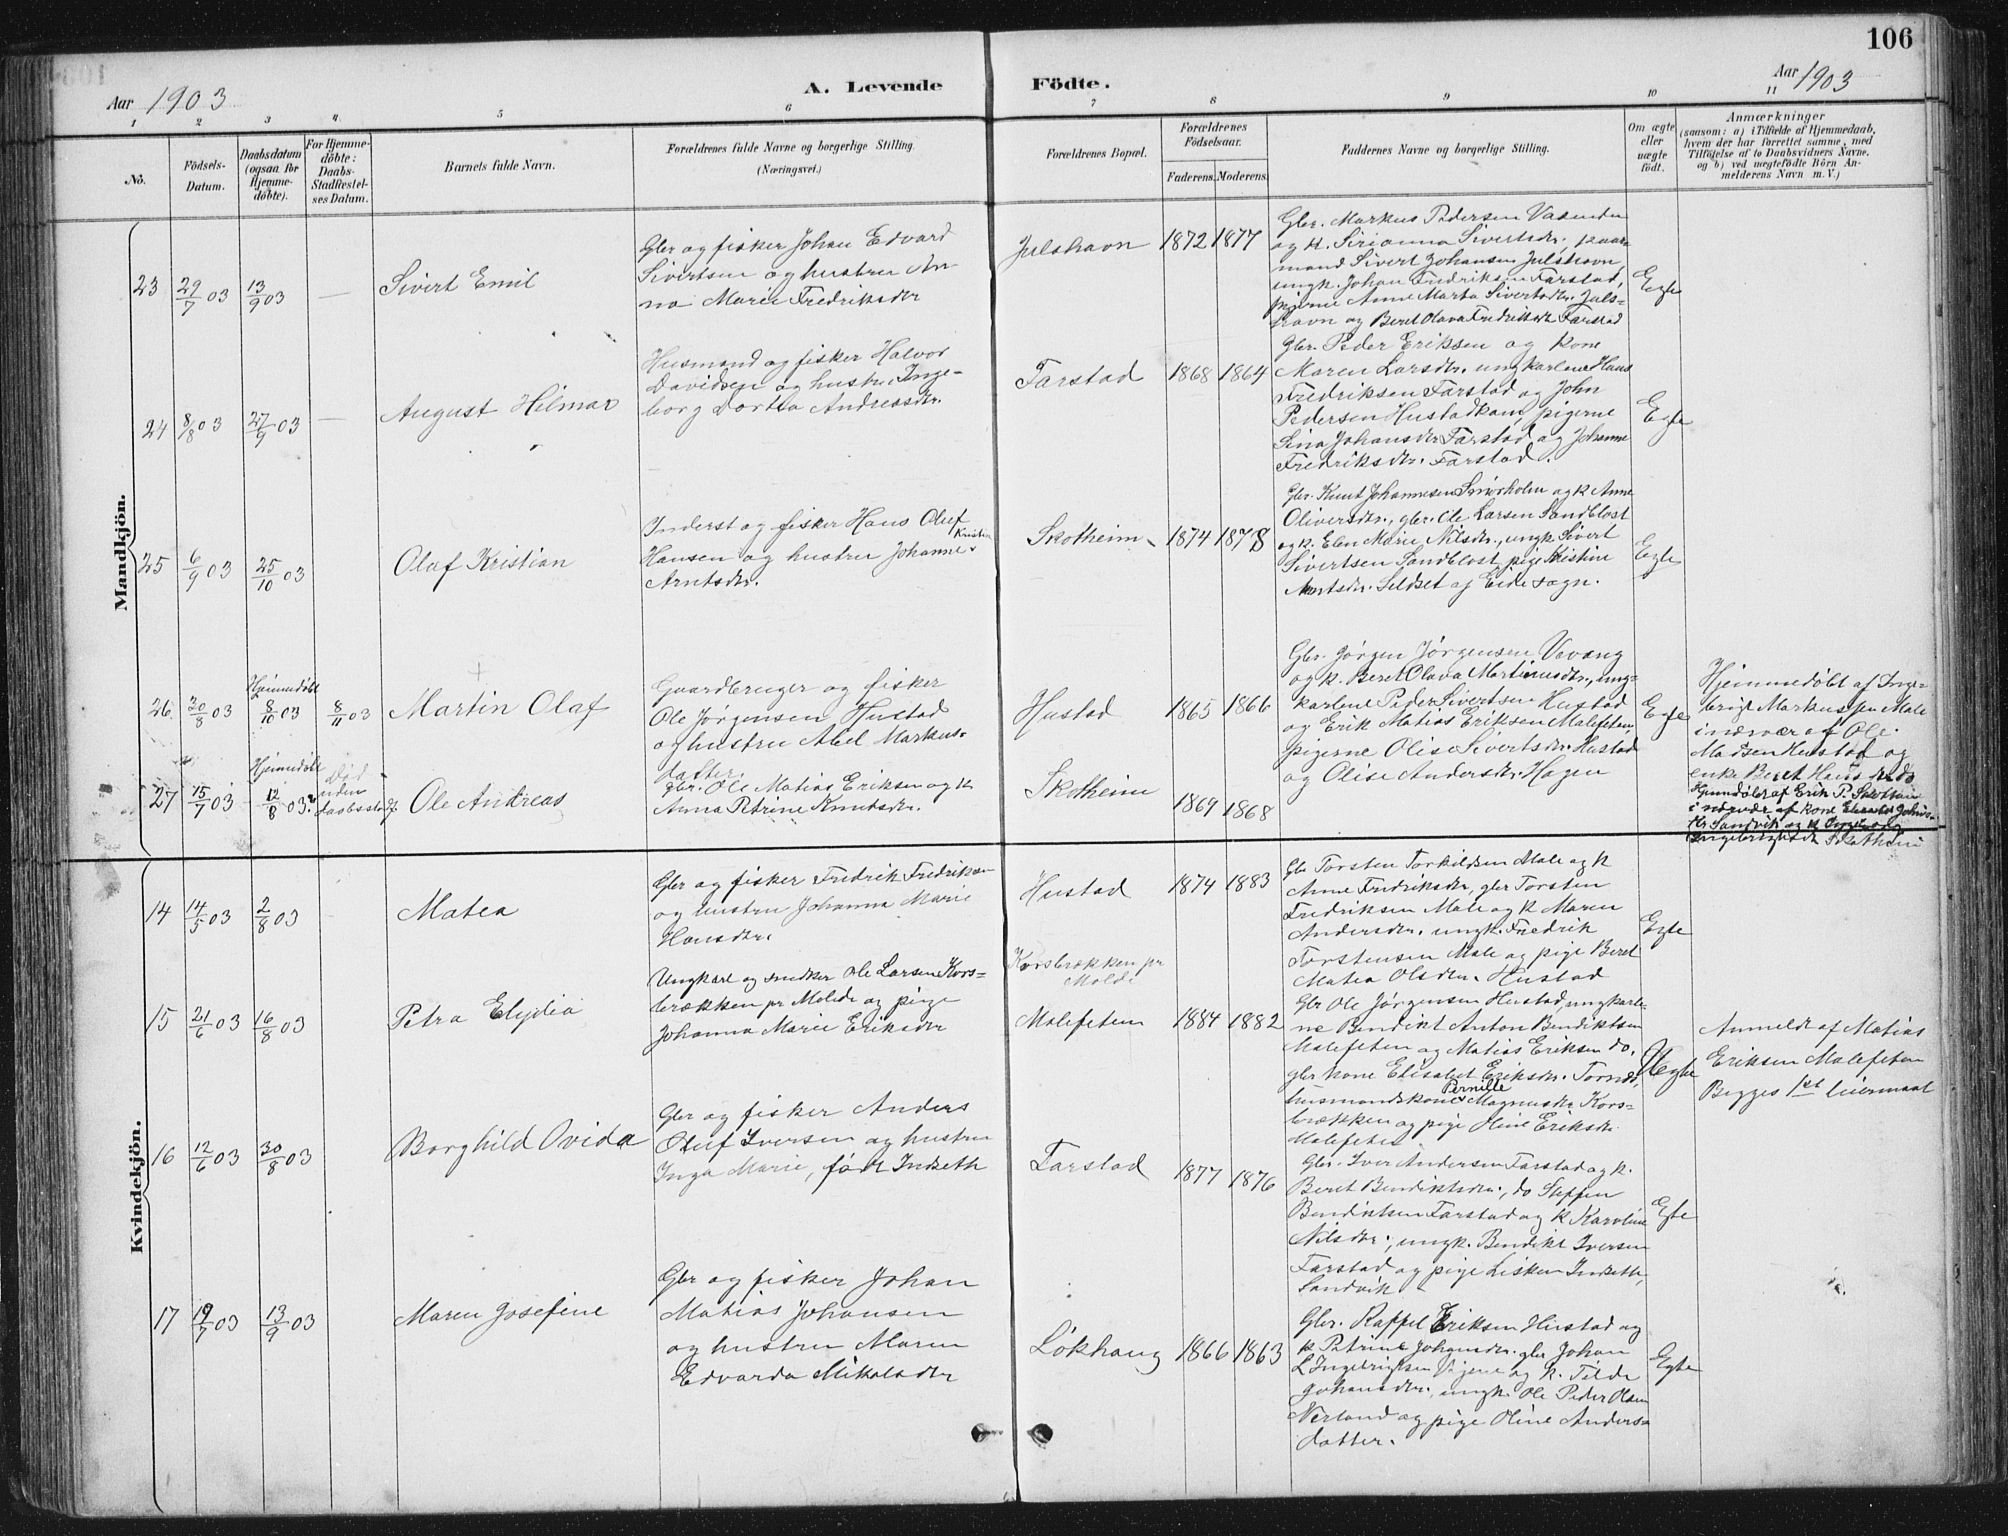 106
Aar 1903
A. Levende
Födte.
Aar 1903
1 2 3 4 5 6 7 8 9 10 11
No.
Födsels-
Datum.
Daabsdatum
(ogsaa for
Hjemme-
döbte).
For Hjemme-
döbte:
Daabs-
Stadfæstel-
ses Datum.
Barnets fulde Navn.
Forældrenes fulde Navne og borgerlige Stilling.
(Næringsvei.)
Forældrenes Bopæl.
Forældrenes
Födselsaar.
Faderens. Moderens.
Faddernes Navne og borgerlige Stilling.
Om ægte
eller
uægte
födt.
Anmærkninger
(saasom: a) i Tilfælde af Hjemmedaab,
hvem der har forrettet samme, med
Tilföielse af to Daabsvidners Navne.
og b) ved uægtefödte Börn An-
melderens Navn m. V.)
Mandkjön.
23
29/7 03
13/9 03
—
Sivert Emil
Gbr og fisker Johan Edvard
Sivertsen og hustru An-
na Marie Fredriksdtr
Julshavn
1872 1877
Gbr. Markus Pedersen Vasenden
og k. Sirianna Sivertsdtr., kaar-
mand Sivert Johansen Julshavn
ungk. Johan Fredriksen Farstad,
pigerne Anne Marta Sivertsdtr. Juls-
havn og Beret Olava Fredriksdtr Farstad
Egte
24
8/8 03
27/9 03
—
August Hilmar
Husmand og fisker Halvor
Davidsen og hustru Inge-
borg Dortea Andreasdtr.
Farstad
1868 1864
Gbr. Peder Eriksen og kone
Maren Larsdtr. ungkarlene Hans
Fredriksen Farstad og John
Pedersen Hustadkam, pigerne
Sina Johansdtr Farstad og Johanne
Fredriksdtr. Farstad.
Egte
25
6/9 03
25/10 03
Olaf Kristian
Inderst og fisker Hans Oluf
Kristian
Hansen og hustru Johanne
Arntsdtr.
Skotheim
1874 1878
Gbr. Knut Johannesen Smørholm og k Anne
Oliversdtr., gbr. Ole Larsen Sandblost
og k. Elen Marie Nilsdtr., ungk Sivert
Sivertsen Sandblost, pige Kristine
Arntsdtr. Seldset af Eide sogn.
Egte
26.
30/8 03
Hjemmedøbt
8/10 03
8/11 03
Martin Olaf
Gaardbruger og fisker
Ole Jørgensen Hustad
og hustru Abel Markus-
datter.
Hustad
1865 1866
Gbr. Jørgen Jørgensen Vevang
og k. Beret Olava Martinusdtr., ung-
karlene Peder Sivertsen Hustad
og Erik Matias Eriksen Malefeten,
pigerne Olise Sivertsdtr. Hustad
og Olise Andersdtr. Hagen
Egte
Hjemmedøbt af Inge-
brigt Markussen Male
i nærvær af Ole
Madsen Hustad og
enke Beret Hansdtr do
27
15/7 03
Hjemmedøbt
12/8 03
Død
uden
daabsstadf.
Ole Andreas
gbr. Ole Matias Eriksen og k
Anna Petrine Knutsdtr.
Skotheim
1869 1868
Hjemmedøbt af Erik P. Skotheim
i nærvær af kone Johns-
dtr Sandvik og k
Ingebrigtsdtr Skotheim
Kvindekjön.
14
14/5 03
2/8 03
Matea
Gbr og fisker Fredrik Fredriksen
og hustru Johanna Marie
Hansdtr.
Hustad
1874 1883
Gbr Torsten Torkildsen Male og k
Anne Fredriksdtr, gbr Torsten
Fredriksen Male og k Maren
Andersdtr. ungk. Fredrik
Torstensen Male og pige Beret
Matea Olsdtr. Hustad
Egte
15
21/6 03
16/8 03
Petra Elydia
Ungkarl og snedker Ole Larsen Kors-
brækken pr Molde og pige
Johanna Marie Eriksdtr
Korsbrækken pr
Molde
Malefeten
1884 1882
Gbr Ole Jørgensen Hustad, ungkarle-
ne Bendikt Anton Bendiktsen
Malefeten og Matias Eriksen do.
gbr kone Elisabet Eriksdtr. Tornes
Pernille
husmandskone Magnusdtr Kors-
brækken og pige Oline Eriksdtr.
Malefeten
Uegte
Anmeldt af Matias
Eriksen Malefeten
Begges 1ste leiermaal
16
12/6 03
30/8 03
Borghild Ovida
Gbr og fisker Anders
Oluf Iversen og hustru
Inga Marie, født Indseth
Farstad
1877 1876
Gbr. Iver Andersen Farstad og k.
Beret Bendiktsdtr., do Steffen
Bendiktsen Farstad og k Karoline
Nilsdtr., ungk. Bendikt Iversen
Farstad og pige Lisken Indseth,
Sandvik
Egte
17
19/7 03
13/9 03
Maren Josefine
Gbr og fisker Johan
Matias Johansen
og hustru Maren
Edvarda Mikalsdtr
Løkhaug
1866 1863
Gbr. Raffel Eriksen Hustad og
k Petrine Johansdtr. gbr Johan
L Ingebrigtsen og k. Tilde
Johansdtr., ungk. Ole Peder Olsen
Nerland og pige Oline Anders-
datter.
Egte